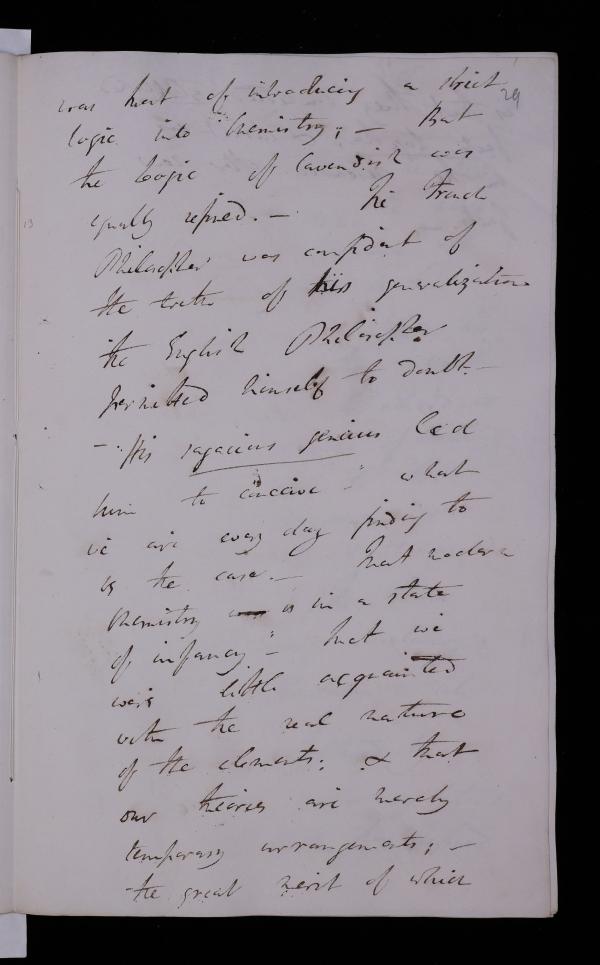 29
was that of introducing a strict
logic into Chemistry; — But
the logic of Cavendish was
equally refined. — The French
Philosopher was confident of
the truth of his generalizations
the English Philosopher
permitted himself to doubt. —
— His sagacious genius led
him to conceive what
we are every day finding to
be the case. — That modern
Chemistry is in a state
of infancy — that we
were little acquainted
with the real nature
of the elements; & that
our theories are merely
temporary arrangements; —
the great merit of which
13